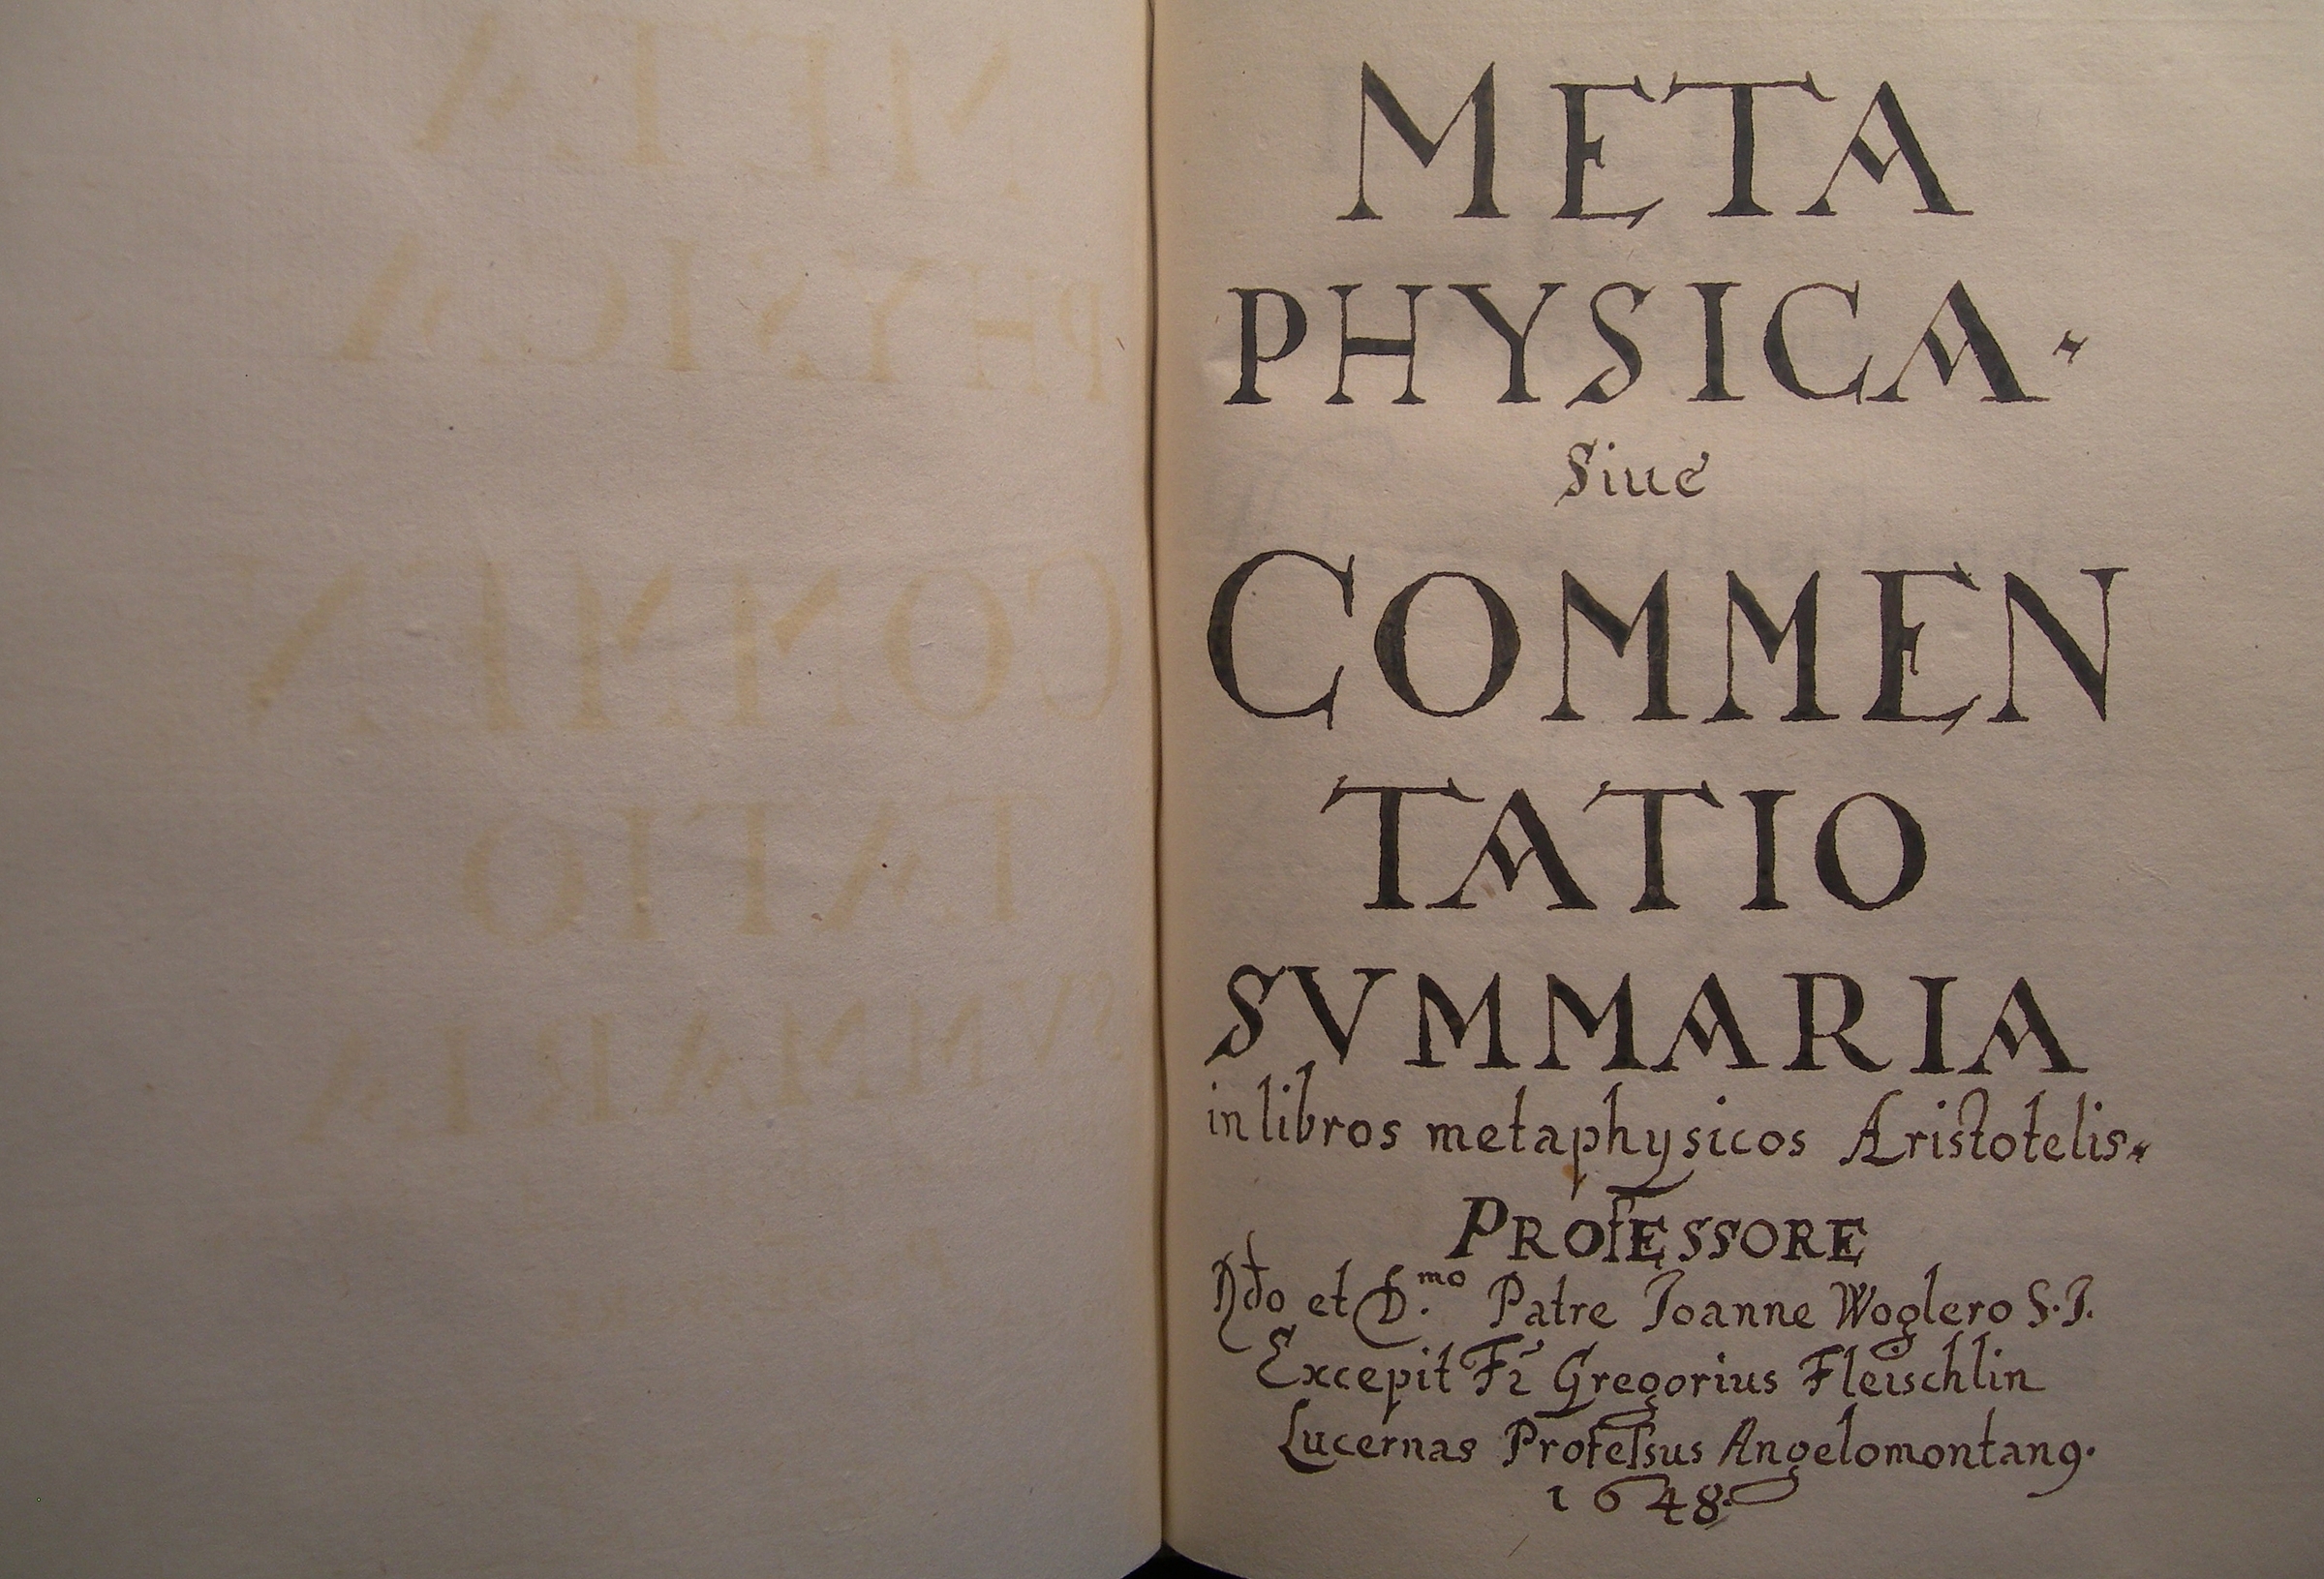 META
PHYSICA.
Siue
COMMEN
TATIO
SVMMARIA
in libros metaphysicos Aristotelis.
PROFESSORE
Rdo et D.mo Patre Joanne Woglero S.J.
Excepit Fr Gregorius Fleischlin
Lucernas Professus Angelomontanꝰ.
1648.